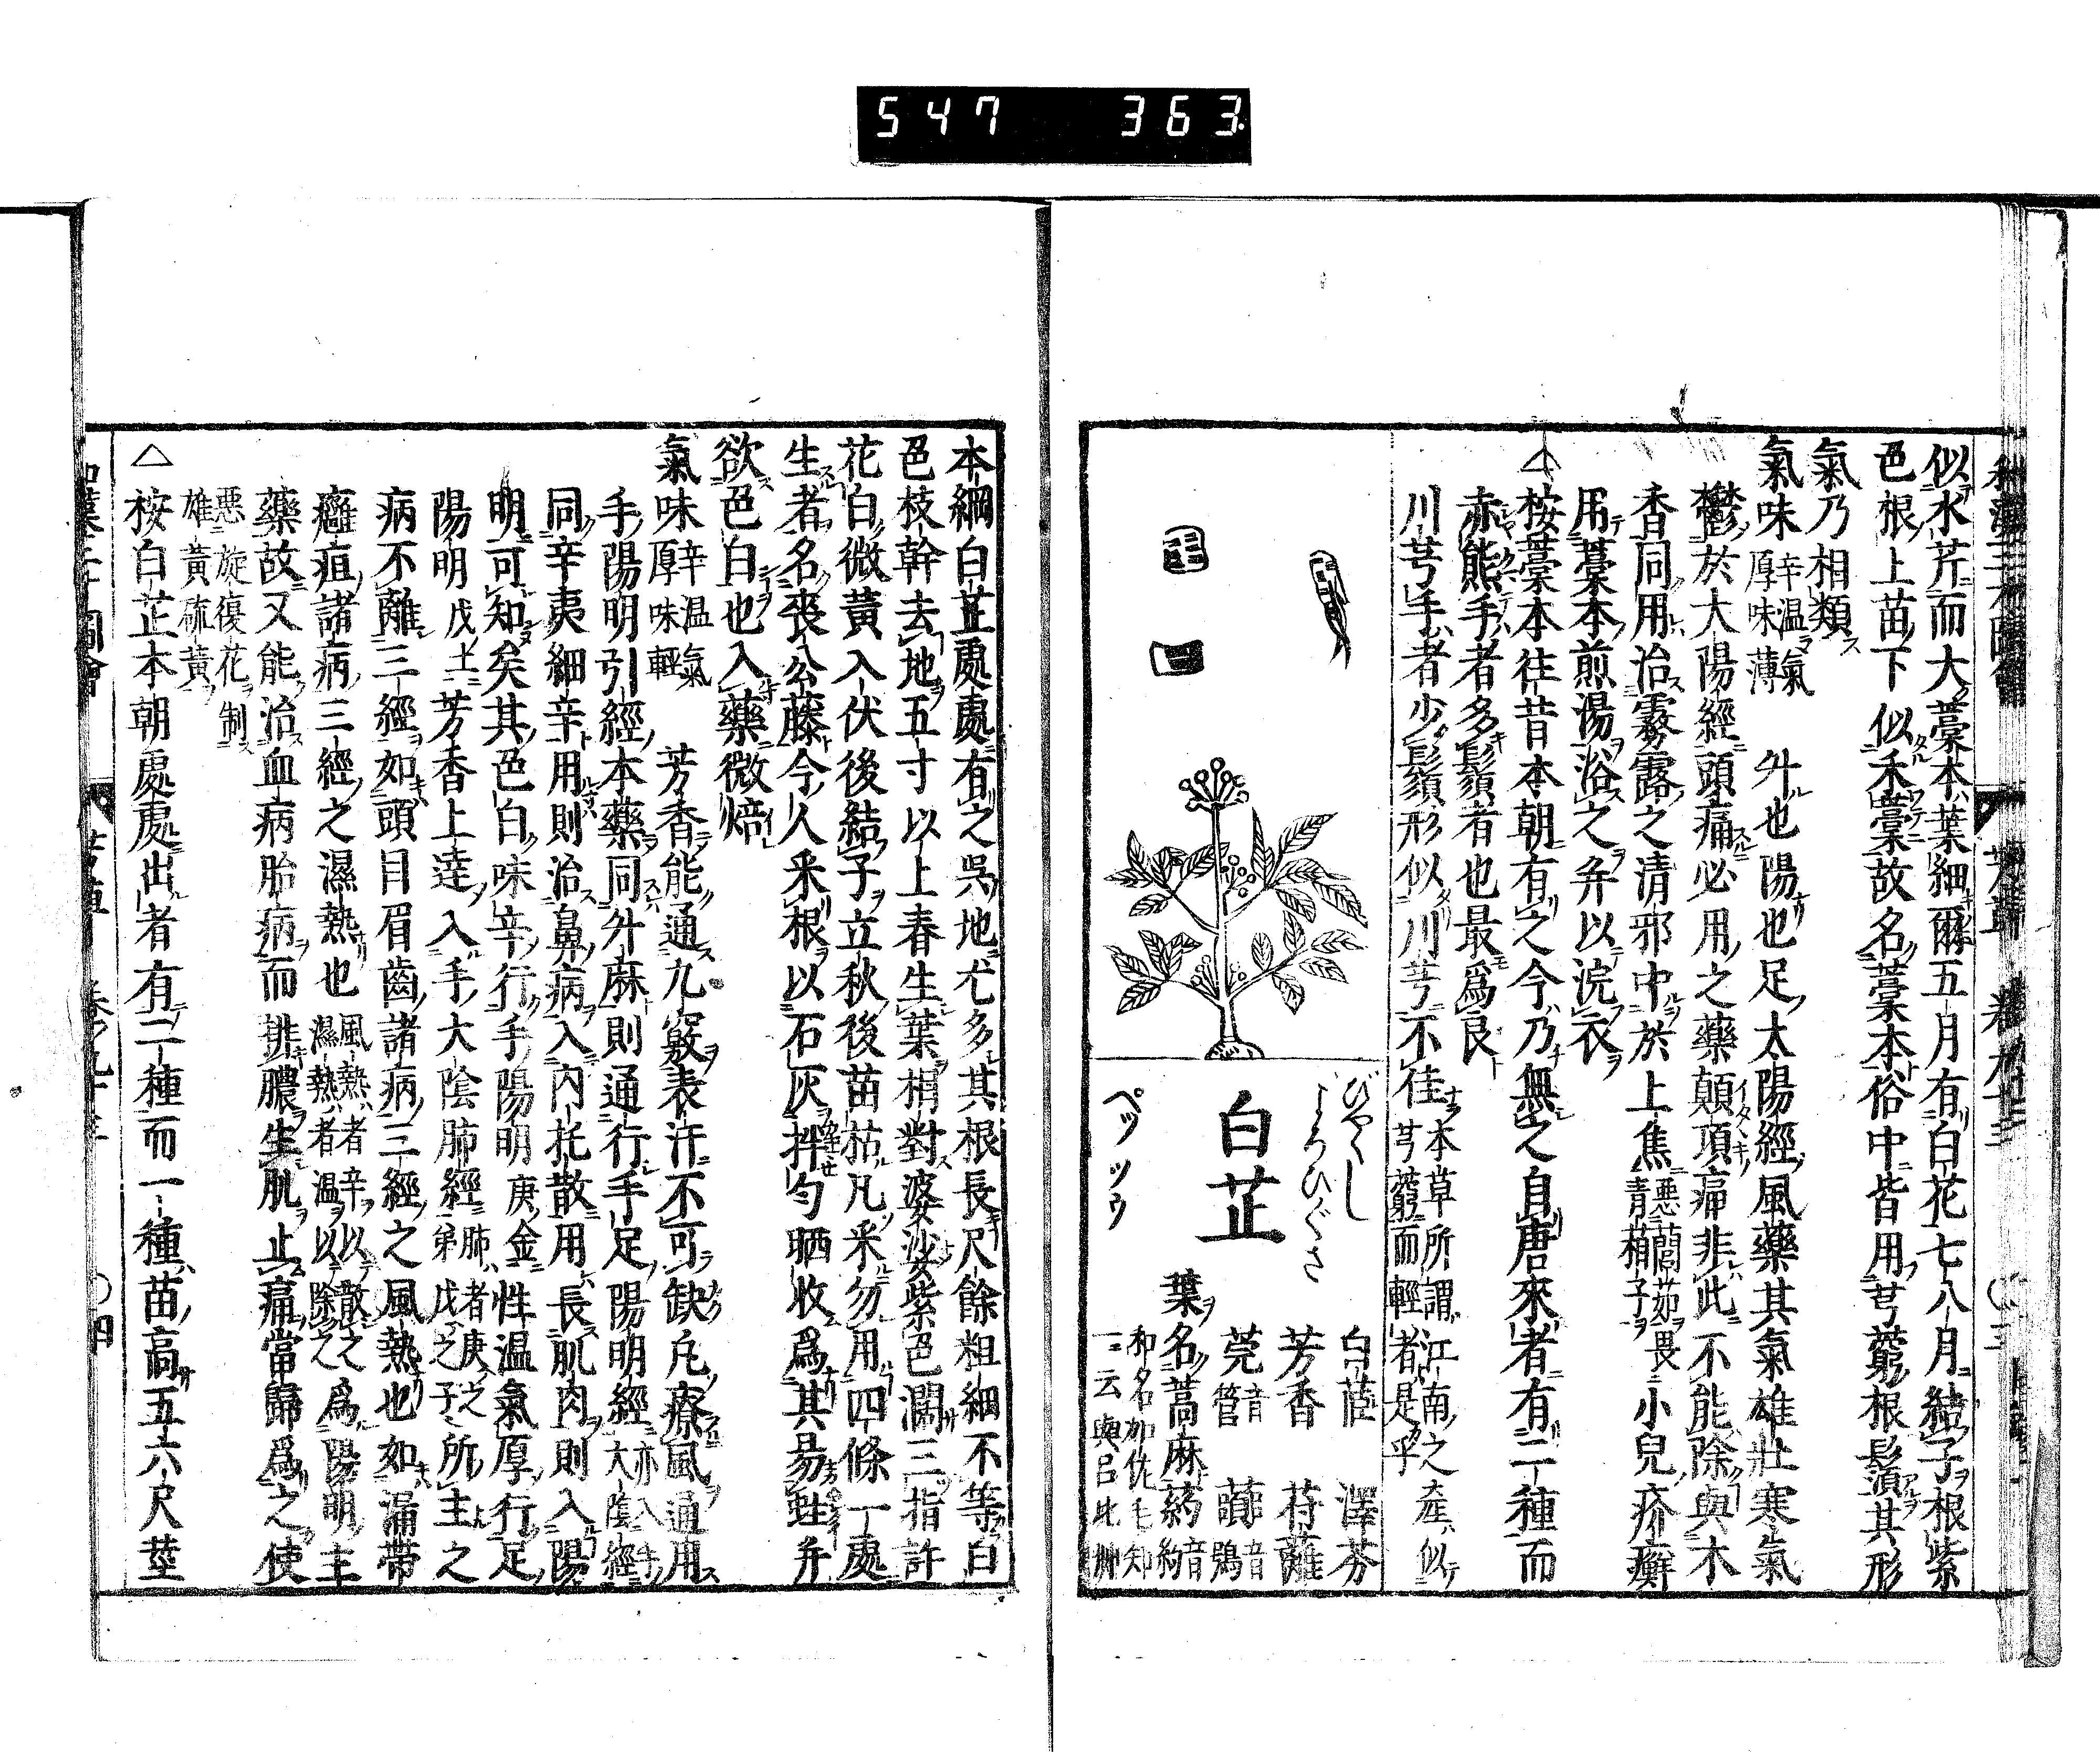 547 363
似水芹而大藁本葉細爾五月有白花七八月結子根紫
色根上苗下似禾藁故名藁本俗中皆用芎藭根鬚湏其形
氣乃相類
氣味 辛温氣厚味薄 升也陽也足太陽經風藥其氣雄壯寒氣
鬱於大陽經頭痛必用之藥顛頂痛非此不能除與木
香同用治霧露之清邪中於上焦 惡䕡茹畏青葙子 小兒疥癬
用藁本煎湯浴之并以浣衣
△桉藁本往昔本朝有之今乃無之自唐來者有二種而
赤熊手者多鬚者也最爲良
川芎手者少鬚形似川芎不佳 本草所謂江南之産似芎藭而輕者是乎
びやくし
よろひぐさ
白芷
ペッツウ
白茝 澤芬
芳香 苻蘺
莞 音管 虈 音鴞
葉名蒿麻葯 音約
和名加佐毛知
一云與呂比
本綱白芷處處有之吳地尤多其根長尺餘粗細不等白
色枝幹去地五寸以上春生葉相對婆娑紫色濶三指許
花白微黃入伏後結子立秋後苗枯凡采勿用四條一處
生者名喪公藤今人采根以石灰拌勻晒收爲其易蛀并
欲色白也入藥微焙
氣味 辛温氣厚味輕 芳香能通九竅表汗不可缺凡療風通用
手陽明引經本藥同升麻則通行手足陽明經 亦入手大陰經
同辛夷細辛用則治鼻病入内托散用長肌肉則入陽
明可知矣其色白味辛行手陽明庚金性温氣厚行足
陽明戊土芳香上達入手大陰肺經 肺者庚之弟戊之子 所主之
病不離三經如頭目眉齒諸病三經之風熱也如漏帶
癰疽諸病三經之濕熱也 風熱者辛以散之濕熱者温以除之 爲陽明主
藥故又能治血病胎病而排膿生肌止痛當歸爲之使
惡旋復花制雄黃硫黃
△桉白芷本朝處處出者有二種而一種苗高五六尺莖